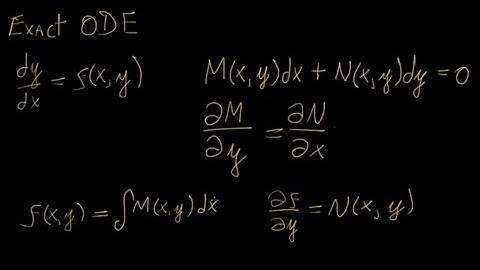 Exact ODE
dy/dx = f(x,y) M(x,y)dx + N(x,y)dy = 0
∂M/∂y = ∂N/∂x
f(x,y) = ∫M(x,y)dx ∂f/∂y = N(x,y)